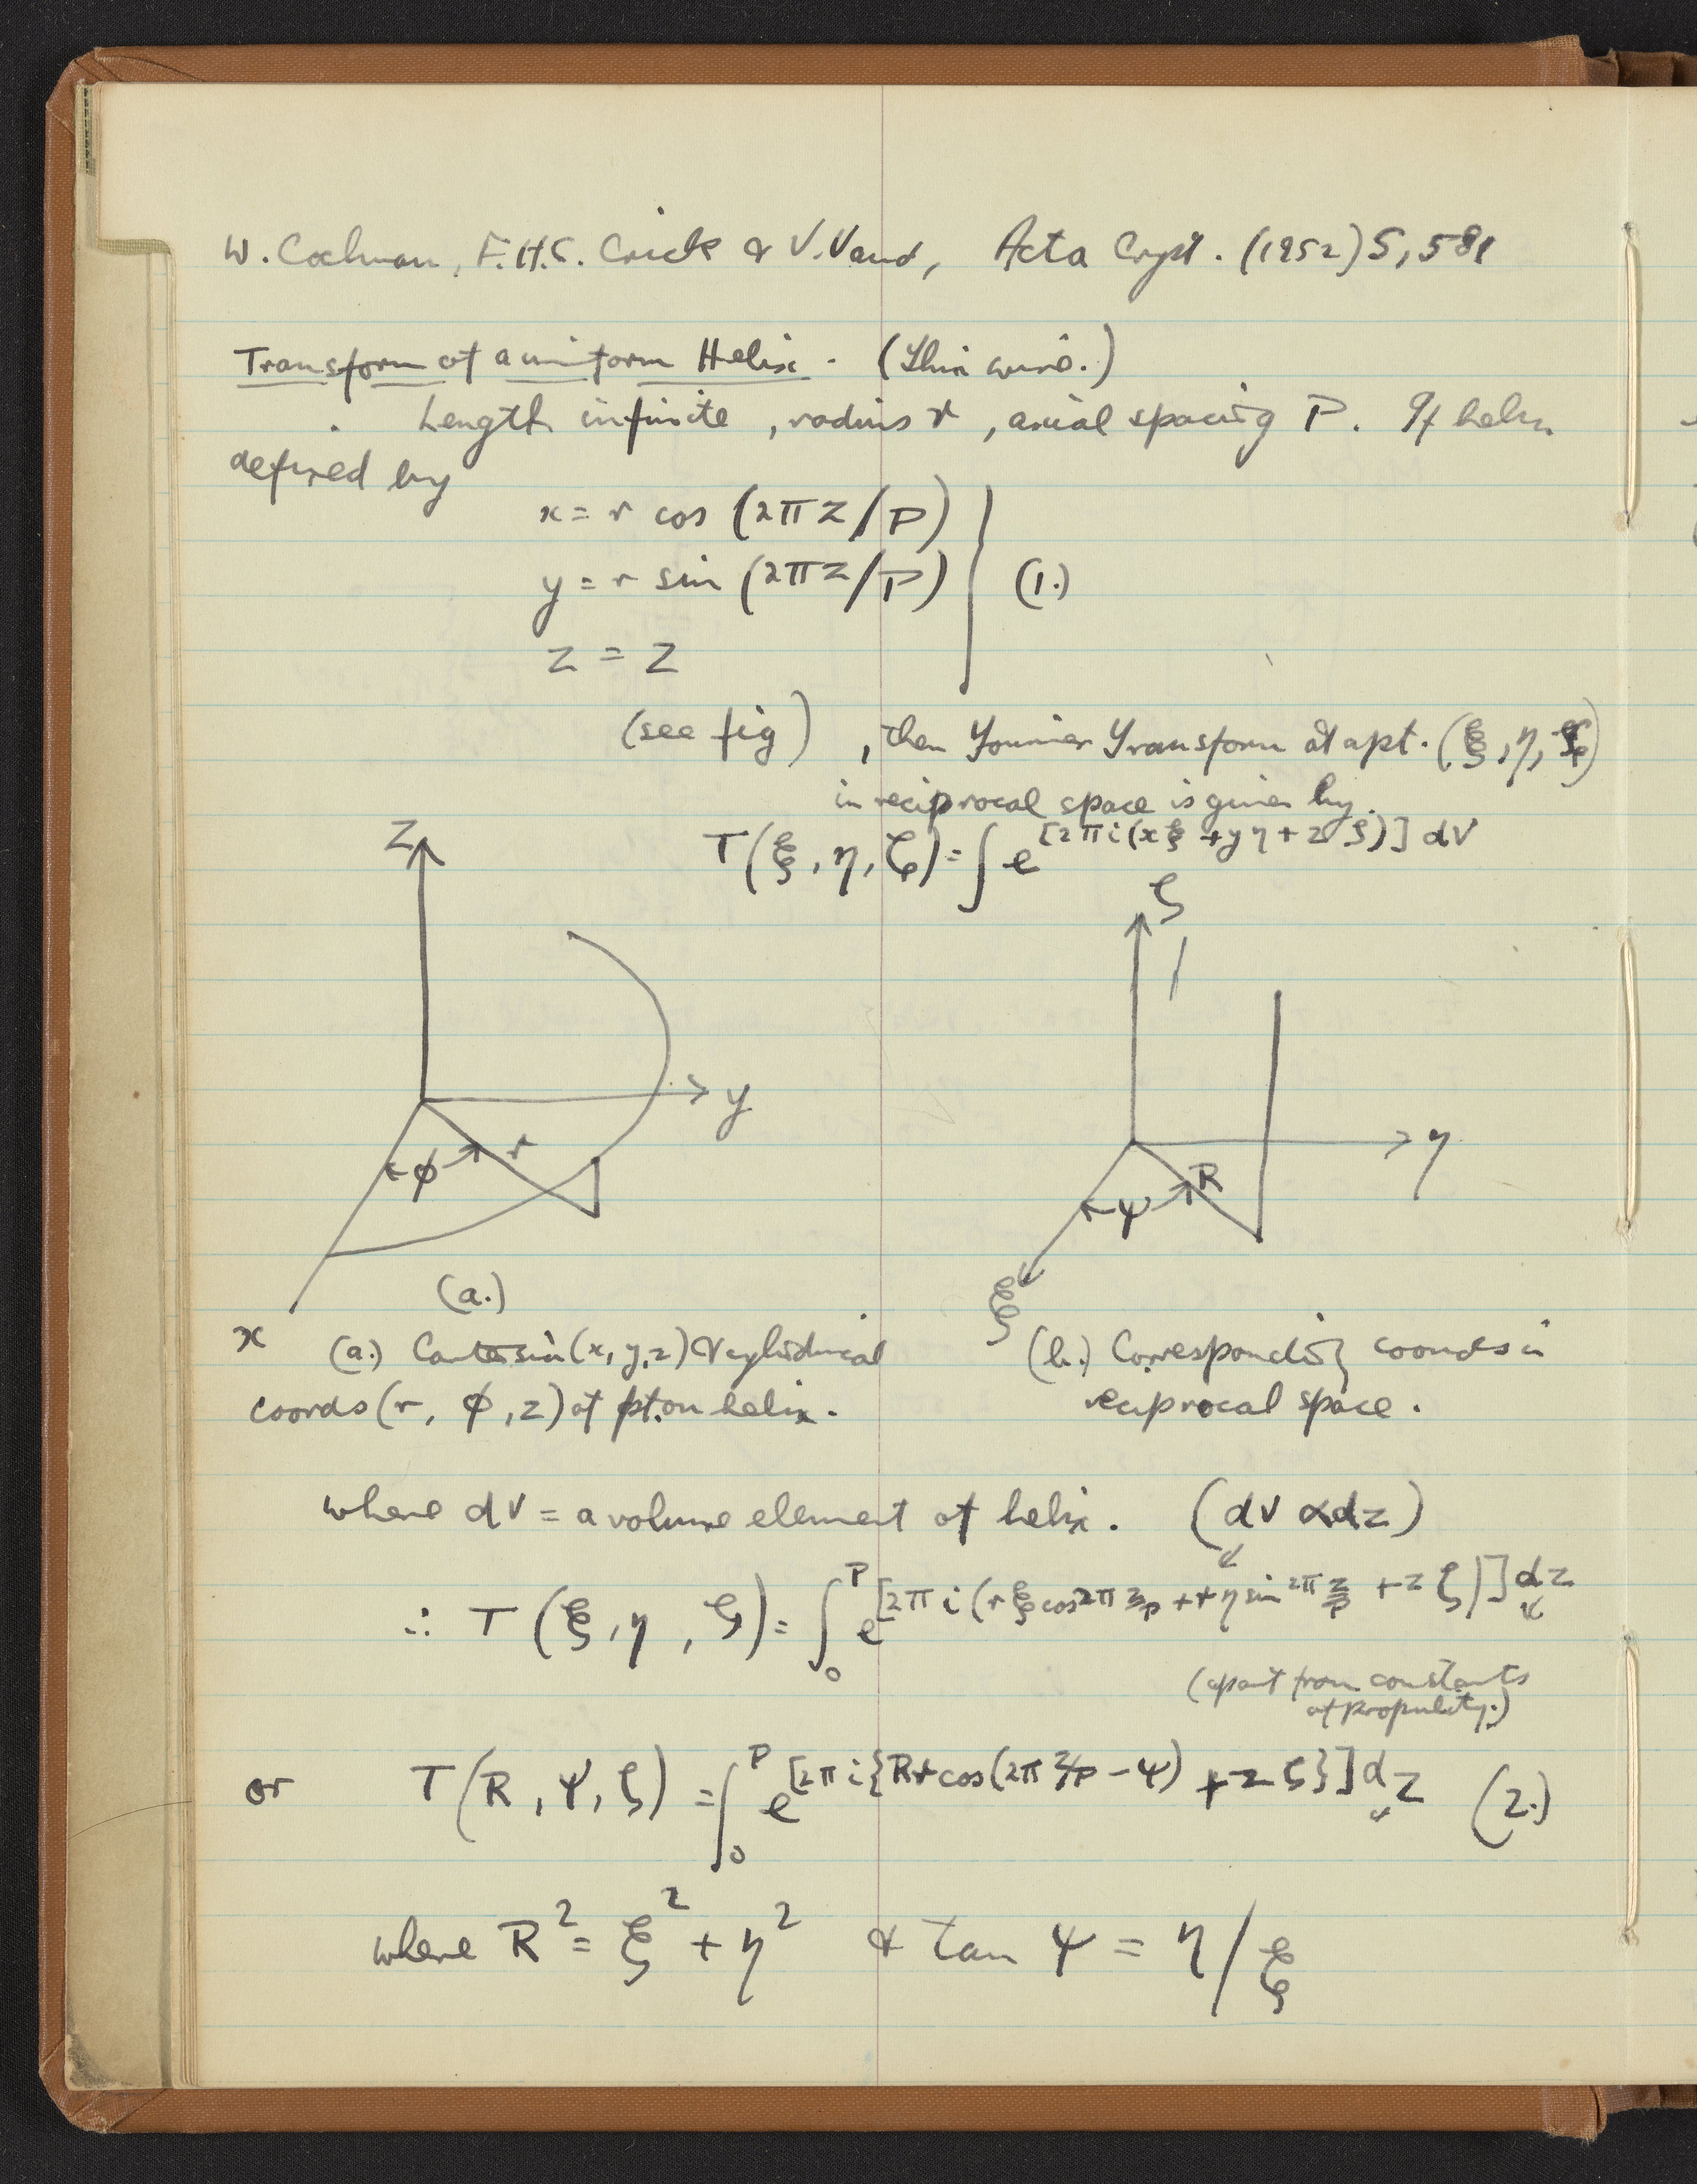 W. Cochran, F.H.C. Crick & V. Vand, Acta Cryst. (1952) 5, 581
Transform of a uniform Helix. (Thin wire.)
Length infinite, radius r, axial spacing P. If helix
defined by
x = r cos (2πz/P)
y = r sin (2πz/P) (1.)
z = z
(see fig), then Fourier Transform at a pt. (ξ, η, ζ)
in reciprocal space is given by.
T(ξ, η, ζ) = ∫ e^[2πi(xξ + yη + zζ)] dV
z
ζ
y
r
φ
η
R
ψ
ξ
(a.)
x
(a.) Cartesin (x, y, z) & cylindrical
coords (r, φ, z) of pt. on helix.
(b.) Corresponding coords in
reciprocal space.
where dV = a volume element of helix. (dV ∝ dz)
∴ T(ξ, η, ζ) = ∫₀^P e^[2πi(rξ cos 2π z/P + rη sin 2π z/P + zζ)] dz
(apart from constants
of
or T(R, ψ, ζ) = ∫₀^P e^[2πi{Rr cos(2π z/P − ψ) + zζ}] dz (2.)
where R² = ξ² + η² & tan ψ = η/ξ